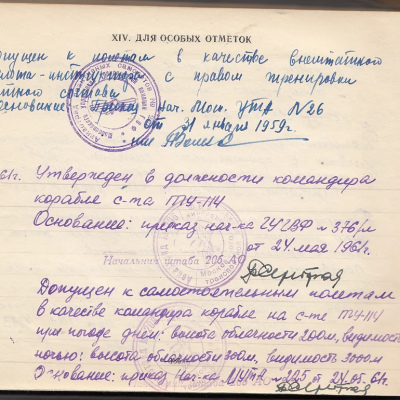 XIV. ДЛЯ ОСОБЫХ ОТМЕТОК
опущен к полетам в качестве внештатного
лота-инструктора с правом тренировки
тного состава
Основание: Приказ нач. Мос. УТА №26
от 31 января 1959г.
61г. Утвержден в должности командира
корабля с-та ТУ-114
Основание: приказ нач-ка ГУГВФ № 376/л
от 24 мая 1961г.
Начальник штаба 206 АО
Допущен к самостоятельным полетам
в качестве командира корабля на с-те ТУ-114
при погоде днем: высота облачности 200м, видимость
ночью: высота облачности 300м, видимость 3000м
Основание: приказ нач-ка МУТА № 225 от 24.05.61г.